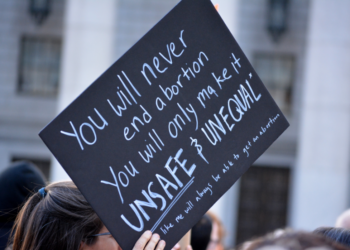 You will never
end abortion
You will only make it
UNSAFE & UNEQUAL"
She me will always be able to get an abortion